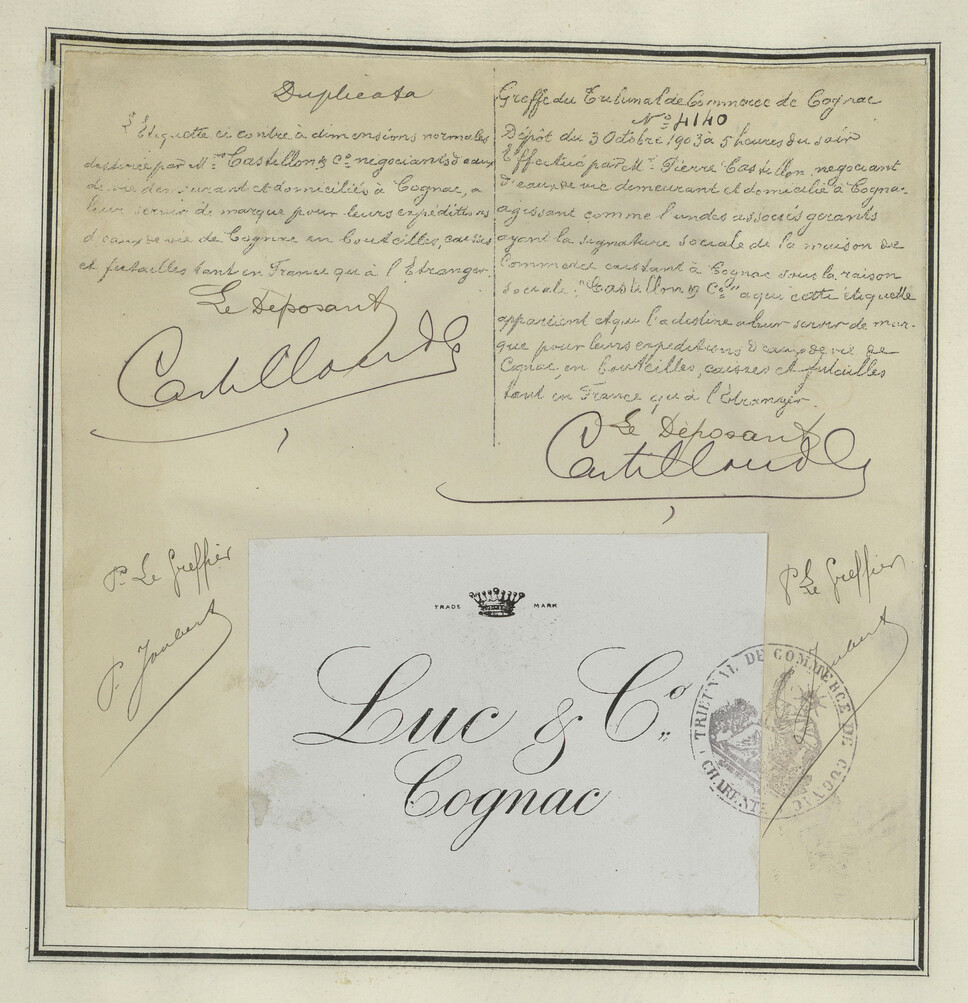 Duplicata
L'Etiquette ci contre à dimensions normales
destinée par M.rs Castillon & Co negociants d'eaux
de vie demeurant et domiciliés à Cognac, a
leur servir de marque pour leurs expéditions
d'eaux de vie de Cognac en bouteilles, caisses
et futailles tant en France qu'à l'Etranger.
Le Déposant
Castillon & Co
Greffe du Tribunal de Commerce de Cognac
No 4140
Dépôt du 3 Octobre 1903 à 5 heures du soir
Effectué par M.r Pierre Castillon, negociant
d'eaux de vie demeurant et domicilié à Cognac
agissant comme l'un des associés gérants
ayant la signature sociale de la maison de
Commerce existant à Cognac sous la raison
sociale: "Castillon & Co" a qui cette étiquette
appartient et qui l'a destine a leur servir de mar-
que pour leurs expéditions d'eaux de vie de
Cognac, en bouteilles, caisses et futailles
tant en France qu'à l'Etranger.
Le Déposant
Castillon & Co
P. Le Greffier
P. Joubert
P. Le Greffier
Joubert
TRADE MARK
Luc & Co.
Cognac
TRIBUNAL DE COMMERCE DE COGNAC
CHARENTE